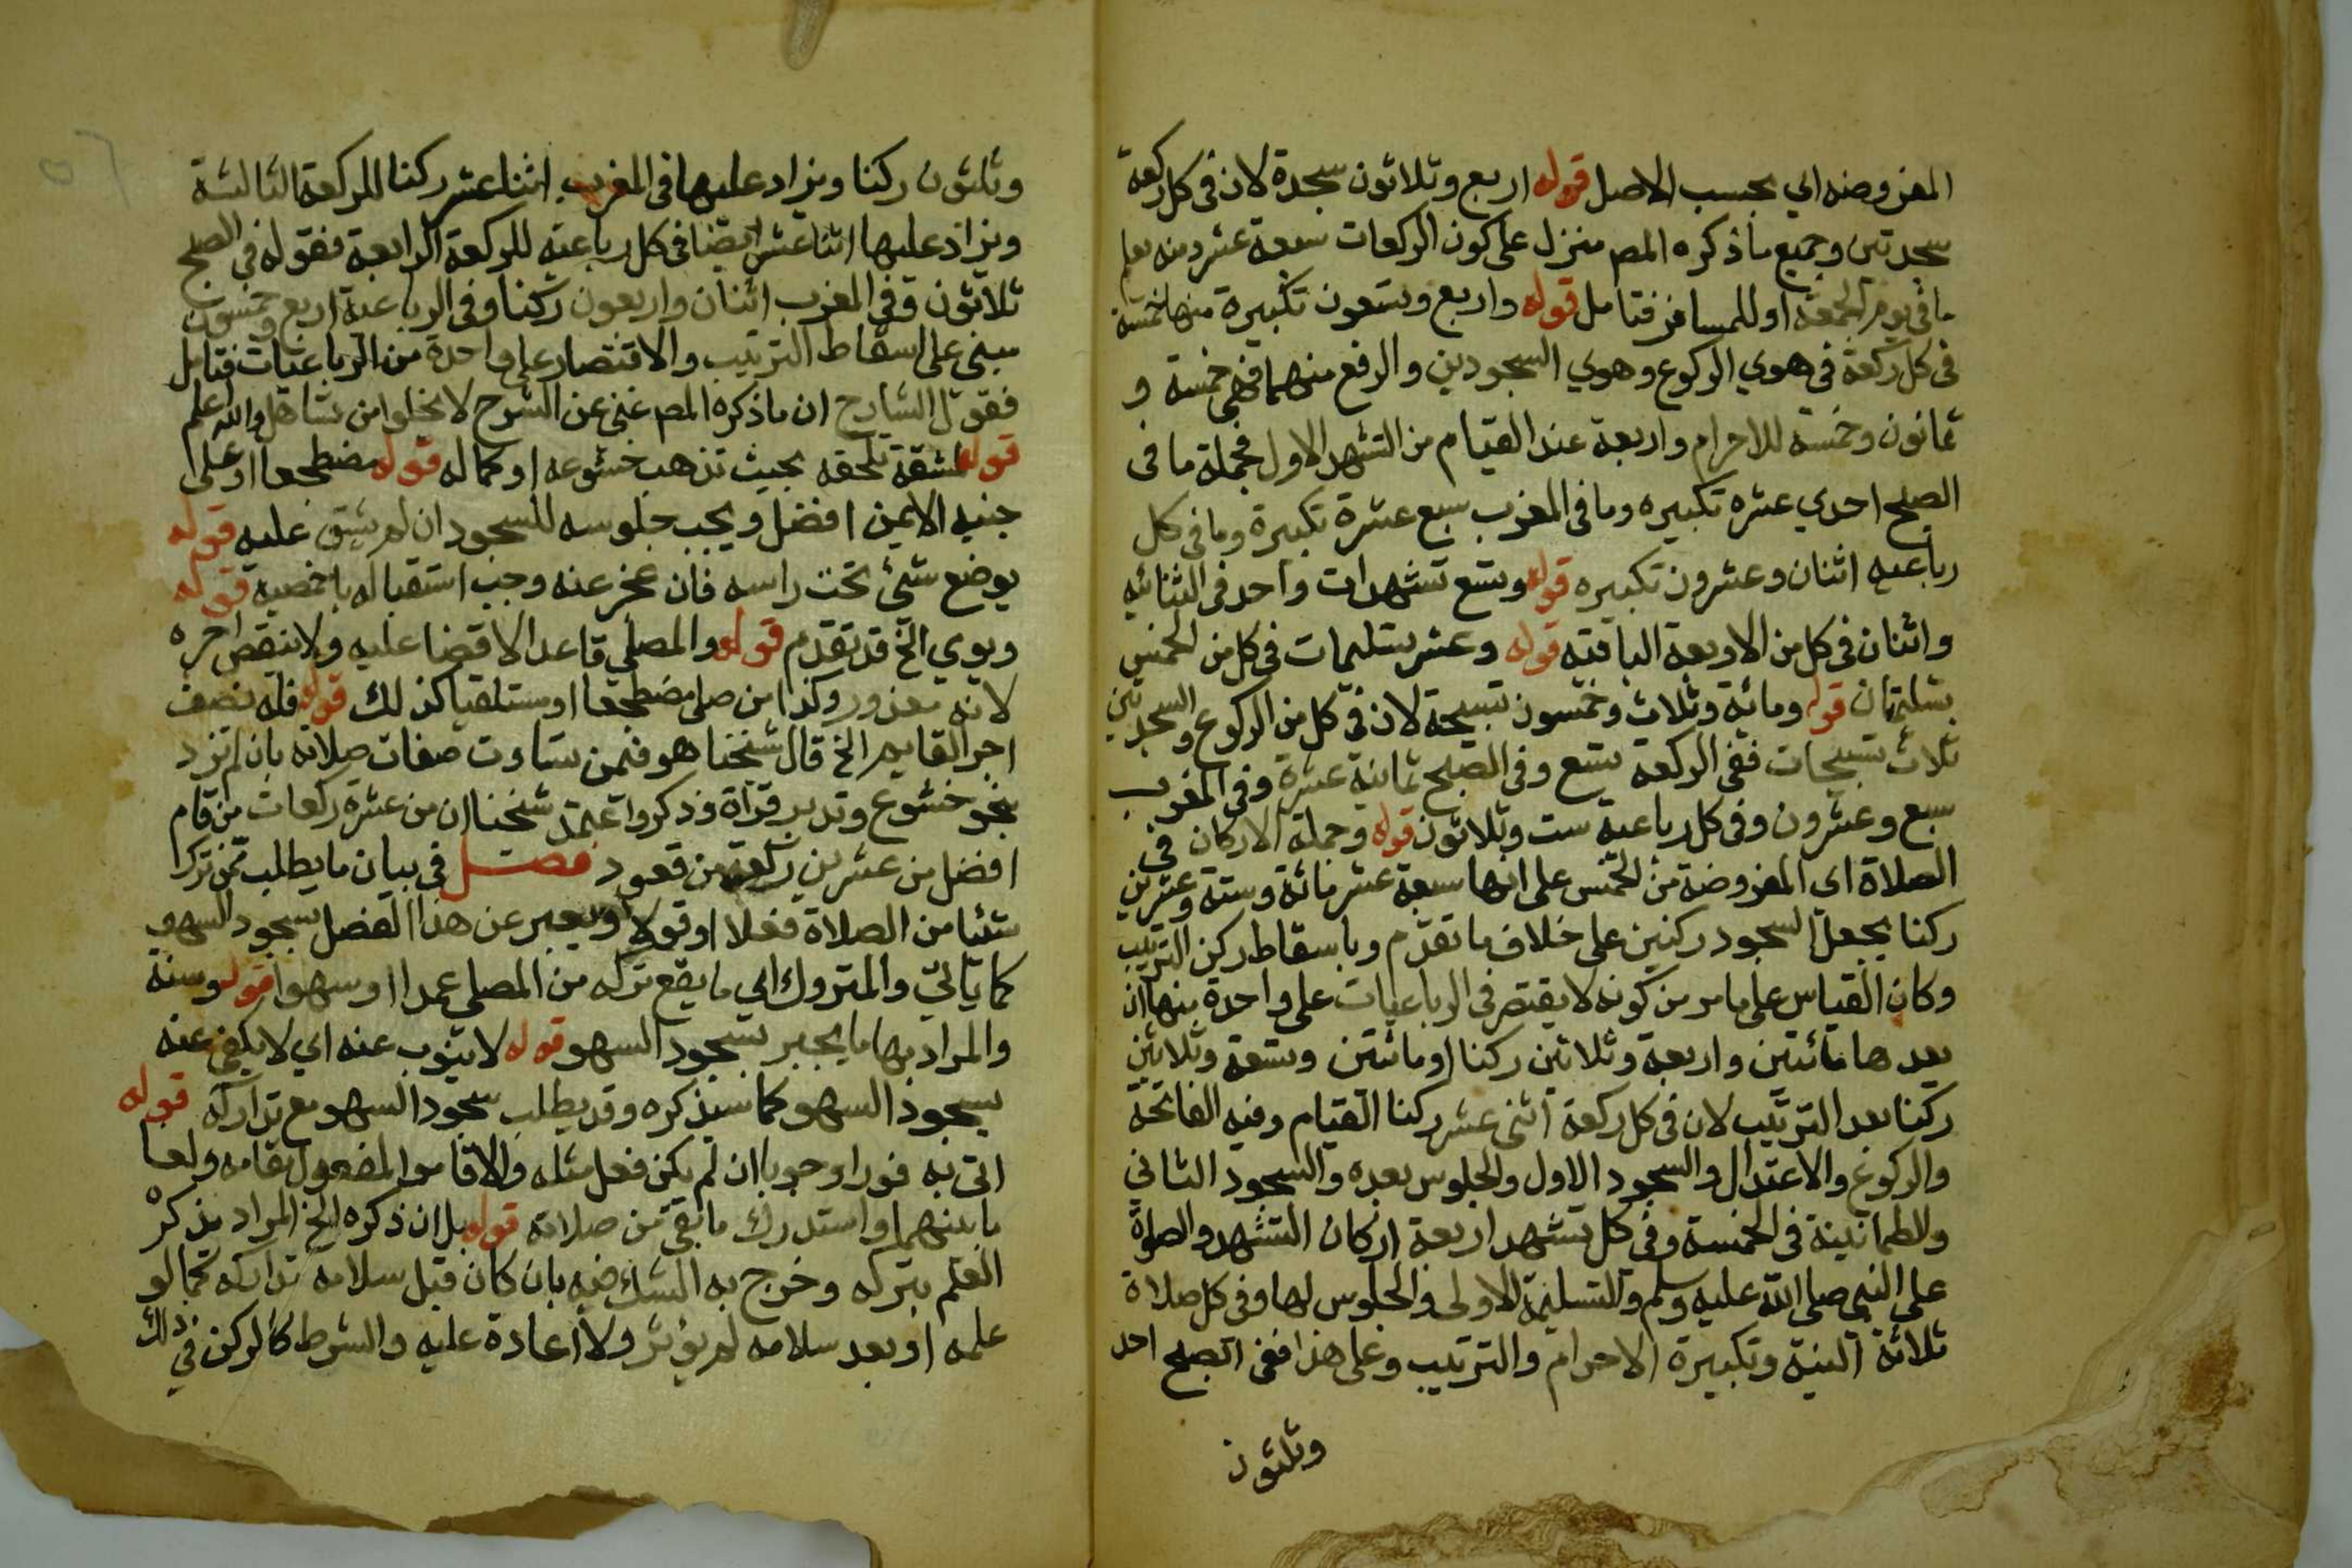 المفروضه اي بحسب الاصل قوله اربع وثلاثون سجدة لان في كل ركعة
سجدتين وجميع ما ذكره المص منزل على كون الركعات سبعة عشر ومنه يعلم
ما في يوم الجمعة او للمسافر فتامل قوله واربع وتسعون تكبيرة منها خمسة
في كل ركعة في هوي الركوع وهوي السجودين والرفع منهما فهي خمسة و
ثمانون وخمسة للاحرام واربعة عند القيام من التشهد الاول فجملة ما في
الصبح احدي عشره تكبيره وما في المغرب سبع عشرة تكبيرة وما في كل
رباعيه اثنان وعشرون تكبيره قوله وتسع تشهدات واحد في الثنائيه
واثنان في كل من الاربعة الباقيه قوله وعشر تسليمات في كل من الخمس
تسليمتان قوله ومائة وثلاث وخمسون تسبيحة لان في كل من الركوع والسجدتين
ثلاث تسبيحات ففي الركعة تسع وفي الصبح ثمانية عشرة وفي المغرب
سبع وعشرون وفي كل رباعية ست وثلاثون قوله وجملة الاركان في
الصلاة اى المفروضة من الخمس على انها سبعة عشر مائة وستة وعشرين
ركنا بجعل السجود ركنين على خلاف ما تقدم وباسقاط ركن الترتيب
وكان القياس على ما مر من كونه لا يقتصر في الرباعيات على واحدة منها ان
يعدها مائتين واربعة وثلاثين ركنا او مائتين وتسعة وثلاثين
ركنا بعد الترتيب لان في كل ركعة اثني عشر ركنا القيام وفيه الفاتحة
والركوع والاعتدال والسجود الاول والجلوس بعده والسجود الثاني
والطمانينة في الخمسة وفي كل تشهد اربعة اركان التشهد والصلوة
على النبي صلى الله عليه وسلم والتسليمة الاولى والجلوس لها وفي كل صلاة
ثلاثة النية وتكبيرة الاحرام والترتيب وعلى هذا ففي الصبح احد
وثلثون
وثلثون ركنا ويزاد عليها في المغرب اثنا عشر ركنا للركعة الثالثة
ويزاد عليها اثنا عشر ايضا في كل رباعيه للركعة الرابعة فقوله في الصبح
ثلاثون وفي المغرب اثنان واربعون ركنا وفي الرباعية اربع وخمسون
مبني على اسقاط الترتيب والاقتصار على واحدة من الرباعيات فتامل
فقول الشارح ان ما ذكره المص غني عن الشرح لا يخلوا من تساهل والله اعلم
قوله لمشقة تلحقه بحيث تذهب خشوعه او كماله قوله مضطجعا او على
جنبه الايمن افضل ويجب جلوسه للسجود ان لم يشق عليه قوله
يوضع شئ تحت راسه فان عجز عنه وجب استقباله باخمصيه قوله
ويومي الخ قد تقدم قوله والمصلي قاعدا لا قضا عليه ولا ينقص اجره
لانه معذور وكذا من صلى مضطجعا او مستلقيا كذلك قوله فله نصف
اجر القايم الخ قال شيخنا هو فيمن تساوت صفات صلاته بان لم تزد
بنحو خشوع وتدبر قراة وذكر واعتمد شيخنا ان من عشرة ركعات من قام
افضل من عشرين ركعة من قعود فصل في بيان ما يطلب ممن ترك
شئيا من الصلاة فعلا او قولا ويعبر عن هذا الفصل بسجود السهو
كما ياتي والمتروك اي ما يقع تركه من المصلي عمدا او سهوا قوله وسنة
والمراد بها ما يجبر بسجود السهو قوله لا ينوب عنه اي لا يكفي عنه
بسجود السهو كما سيذكره وقد يطلب سجود السهو مع تداركه قوله
اتى به فورا وجوبا ان لم يكن فعل مثله والا قام المفعول مقامه ولغا
ما بينهما واستدرك ما بقي من صلاته قوله بل ان ذكره الخ المراد بذكره
العلم بتركه وخرج به الشك فيه بان كان قبل سلامه تداركه كما لو
علمه او بعد سلامه لم يؤثر ولا اعادة عليه والشرط كالركن في ذلك